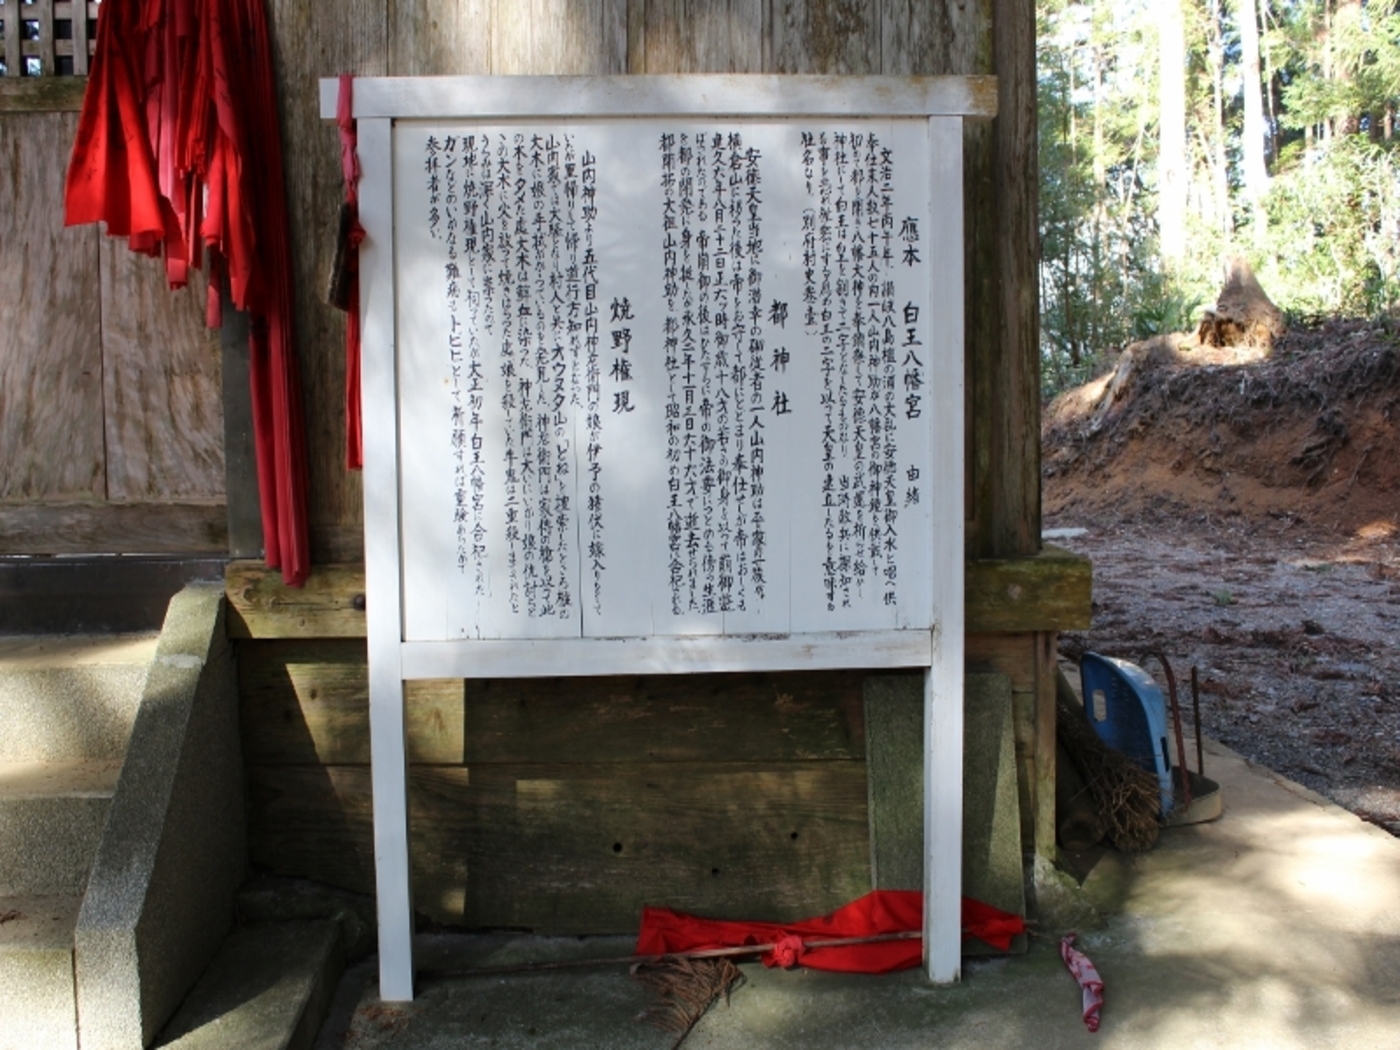 應本 白王八幡宮 由緒
文治二年丙午年、讃岐八島檀の浦の大乱に安徳天皇御入水と唱へ供
奉仕末人数七十五人の内一人山内神助が八幡宮の御神鏡を供試して
初めて都を開き八幡大神を奉鎮祭して安徳天皇の武運を祈らせ給ふ
神社にして白王は皇を割きて二字となしたるものなり 出所敵兵に探知され
る事を恐れ
社名なり (別府村史巻壹)
都神社
安徳天皇当地に御潜幸の御従者の一人山内神助は平家の一族が
横倉山に移つた後は帝をお守りして都にとどまり奉仕せしが帝はおしくも
建久六年八月二十二日正六ツ時御歳十八才の若さの御身を以つて崩御遊
ばされたのである 帝崩御の後はひたすらに帝の御法要につとめる傍ら生涯
を都の開発に身を挺したが承久二年十一月三日六十六才で逝去せられました
都開拓の大祖山内神助を都神社として昭和の初め白王八幡宮に合祀される
焼野権現
山内神助より五代目山内神左衛門の娘が伊予の猪伏に嫁入りをして
いたが里帰りして帰り道行方不知れずとなった
山内家では大騒となり村人と共に大ウヌタ山の 捜索したところ桂の
大木に娘の手拭がかかっているのを発見した 神左衛門は家徳の槍を以って此
の木をヌタた処大木は鮮血に染った 神左衛門は大いにいかり娘の仇討だと
この大木に火を放って焼きはらった処娘を殺していた牛鬼は二重殺しまされたと
うらみは深く山内家に祟るので
現地に焼野権現として祠っていたが大正初年白王八幡宮に合祀された
ガンなどのいかなる難病でトヒヒとして祈願すれば霊験あらたかで
参拝者が多い